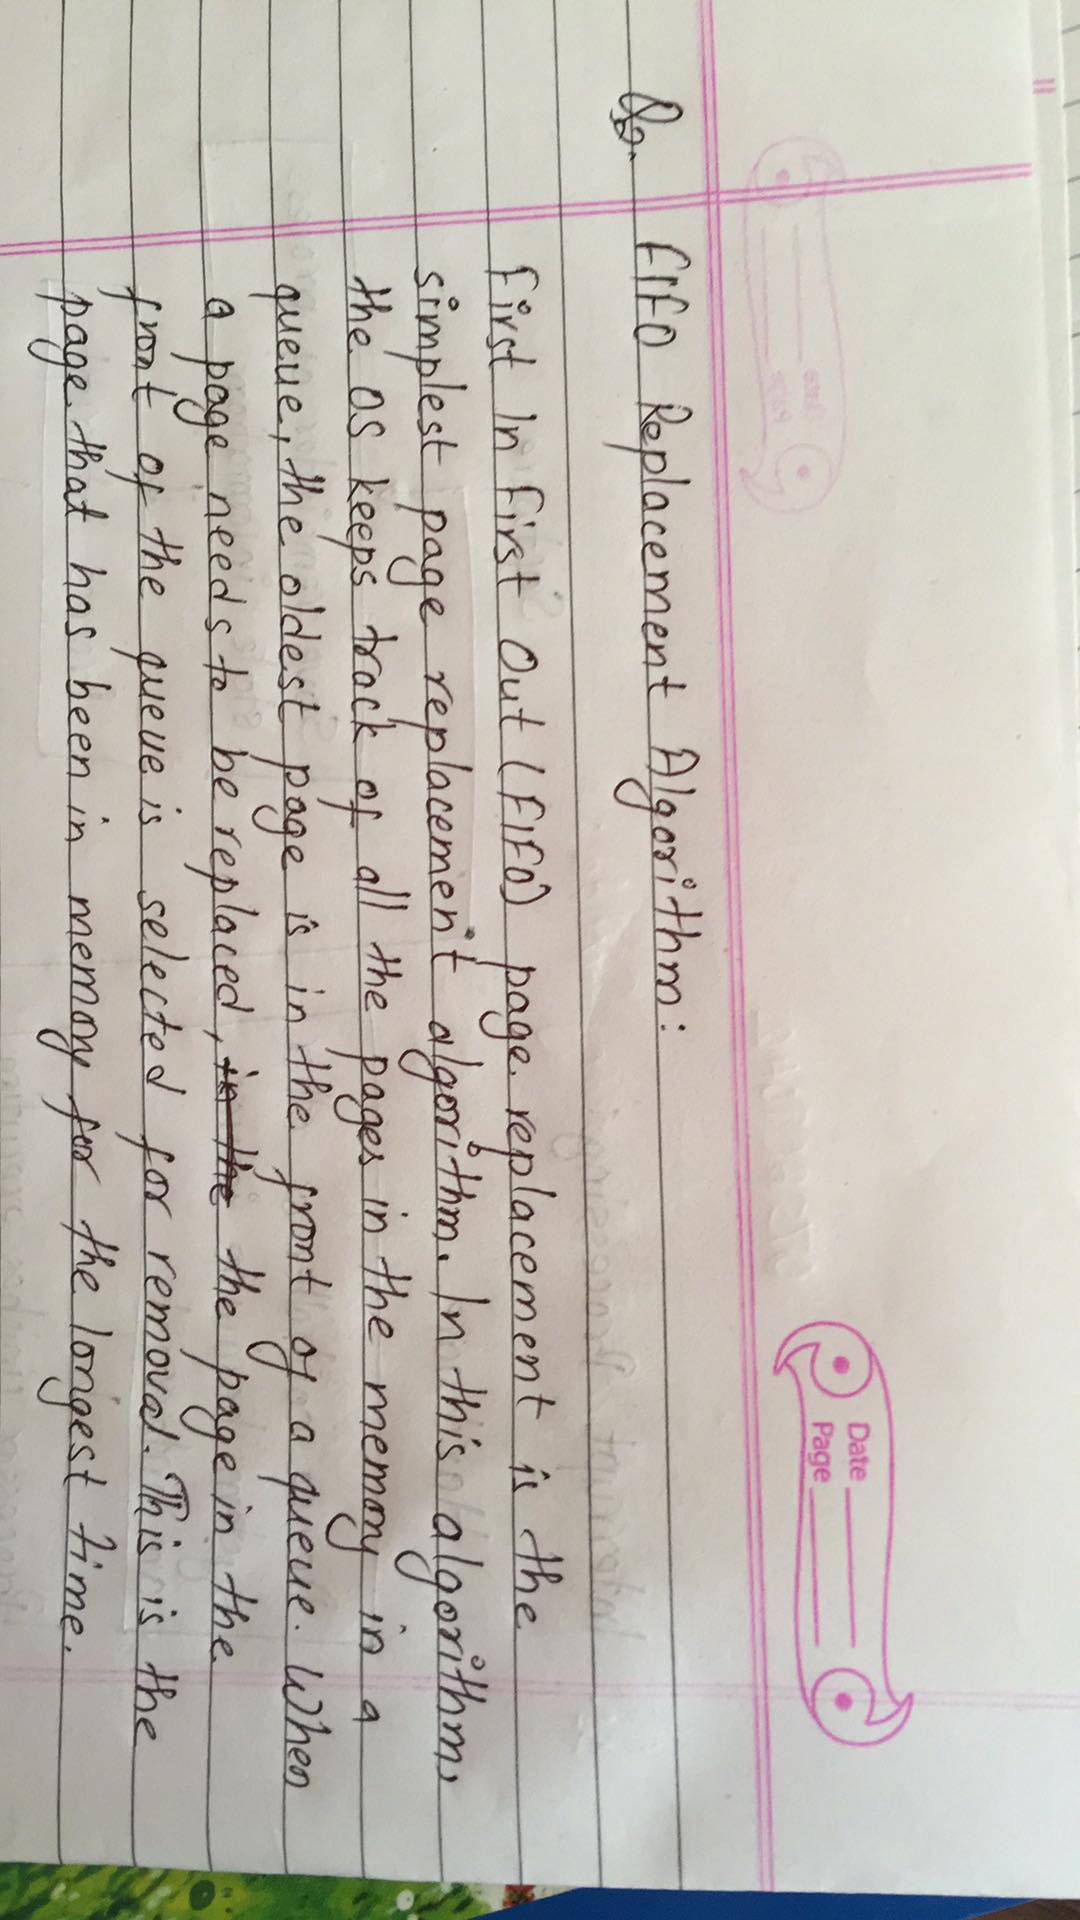 Date
Page
Q2. FIFO Replacement Algorithm:
First In First Out (FIFO) page replacement is the
simplest page replacement algorithm. In this algorithm,
the OS keeps track of all the pages in the memory in a
queue, the oldest page is in the front of a queue. When
a page needs to be replaced, in the the page in the
front of the queue is selected for removal. This is the
page that has been in memory for the longest time.